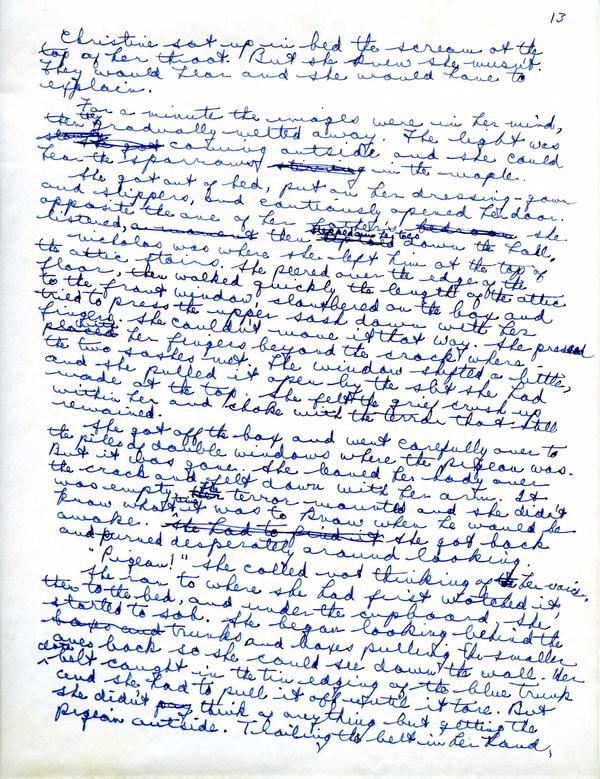 13
Christine sat up in bed the scream at the
top of her throat. But she knew she musn't.
They would hear and she would have to
explain.
For a minute the images were in her mind,
then gradually melted away. The light was
coming outside and she could
hear the sparrows in the maple.
She got out of bed, put on her dressing-gown
and slippers, and cautiously opened her door.
opposite the one of her she
listened, then down the hall,
Nicholas was where she left him at the top of
the attic stairs. She peered over the edge of the
floor, then walked quickly the length of the attic
to the front window, clambered on the box and
tried to press the upper sash down with her
fingers. She couldn't move it that way. She pressed
her fingers beyond the crack where
the two sashes met. The window shifted a little,
and she pulled it open by the slit she had
made at the top. She felt the grief crush up
within her and choke with the terror that still
remained.
She got off the box, and went carefully over to
the piled double windows where the pigeon was.
But it was gone. She leaned her body over
the crack and felt down with her arm. It
was empty. terror mounted and she didn't
know what it was to know when he would be
awake. she had to find it she got back
and turned desperately around looking.
"Pigeon!" she called not thinking of her voice.
She ran to where she had first watched it,
then to the bed, and under the cupboard she
started to sob. She began looking behind the
boxes and trunks and boxes pulling the smaller
ones back so she could see down the wall. Her
belt caught in the tin edging of the blue trunk
and she had to pull it off until it tore. But
she didn't think of anything but getting the
pigeon outside. Trailing the belt in her hand,